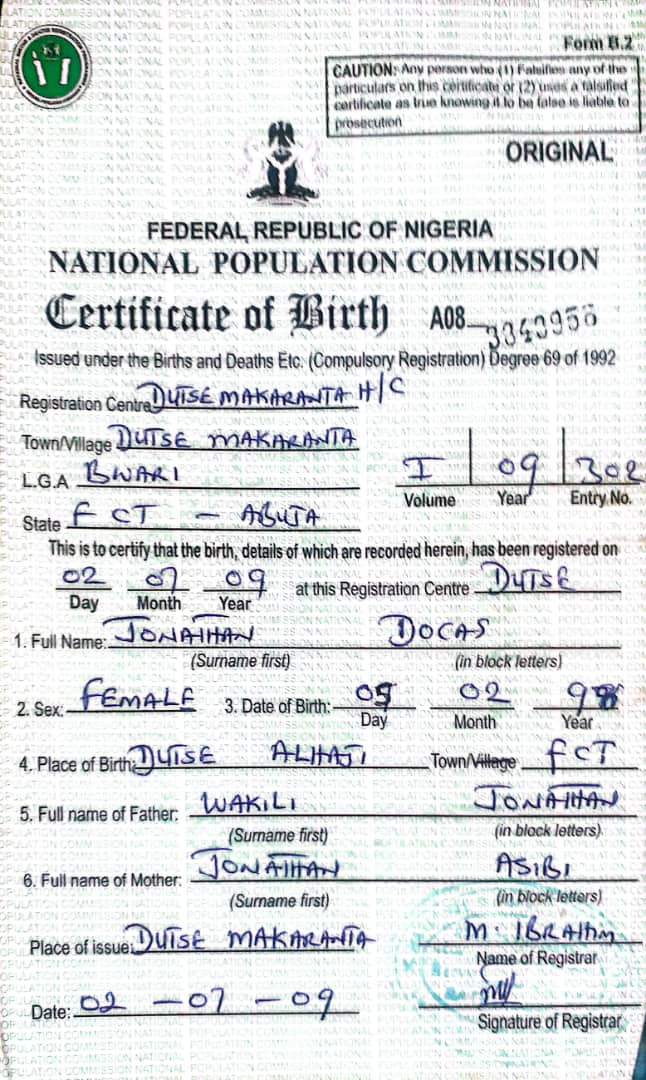 Form B.2
CAUTION: Any person who (1) Falsifies any of the
particulars on this certificate or (2) uses a falsified
certificate as true knowing it to be false is liable to
prosecution
ORIGINAL
FEDERAL REPUBLIC OF NIGERIA
NATIONAL POPULATION COMMISSION
Certificate of Birth A08 3343956
Issued under the Births and Deaths Etc. (Compulsory Registration) Degree 69 of 1992
Registration Centre DUTSE MAKARANTA H/C
Town/Village DUTSE MAKARANTA
L.G.A BWARI I 09 302
Volume Year Entry No.
State FCT - ABUJA
This is to certify that the birth, details of which are recorded herein, has been registered on
02 07 09 at this Registration Centre DUTSE
Day Month Year
1. Full Name: JONATHAN DOCAS
(Surname first) (in block letters)
2. Sex: FEMALE 3. Date of Birth: 05 02
Day Month Year
4. Place of Birth: DUTSE ALHAJI Town/Village FCT
5. Full name of Father: WAKILI JONATHAN
(Surname first) (in block letters)
6. Full name of Mother: JONATHAN ASIBI
(Surname first) (in block letters)
Place of issue: DUTSE MAKARANTA M. IBRAHIM
Name of Registrar
Date: 02 - 07 - 09
Signature of Registrar